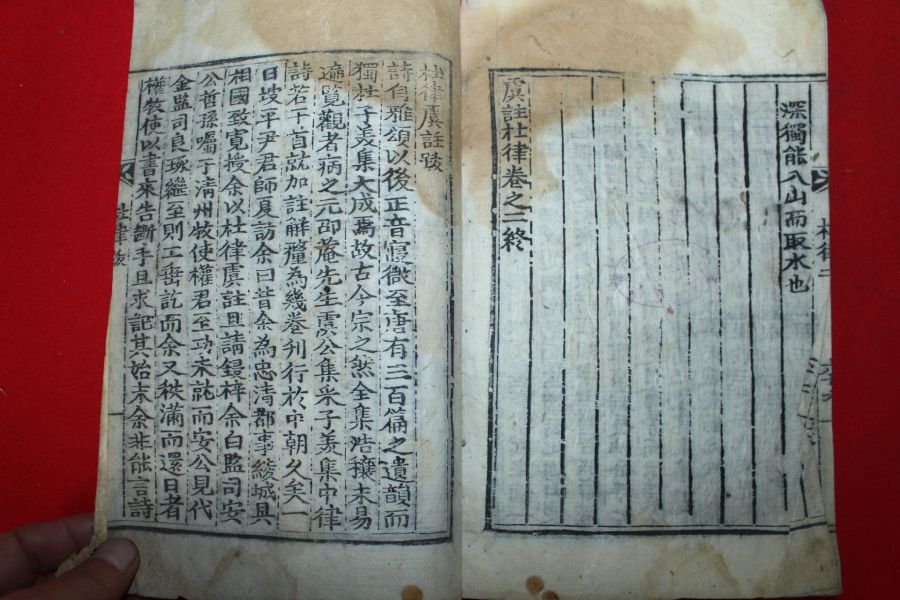 深獨能入山而取水也
虞註杜律卷之二終
杜律二
杜律虞註跋
詩自雅頌以後正音寢微至唐有三百篇之遺韻而
獨杜子美集大成焉故古今宗之然全集浩穰未易
遍覽觀者病之元邵菴先生虞公集采子美集中律
詩若干首就加註解釐為幾卷刊行於中朝久矣一
日坡平尹君師夏訪余曰昔余為忠清都事綾城具
相國致寬授余以杜律虞註且請鋟梓余白監司安
公哲孫囑于清州牧使權君至功未就而安公見代
金監司良璥繼至則工垂訖而余又秩滿而還日者
權牧使以書來告斷手且求記其始末余非能言詩
杜律跋